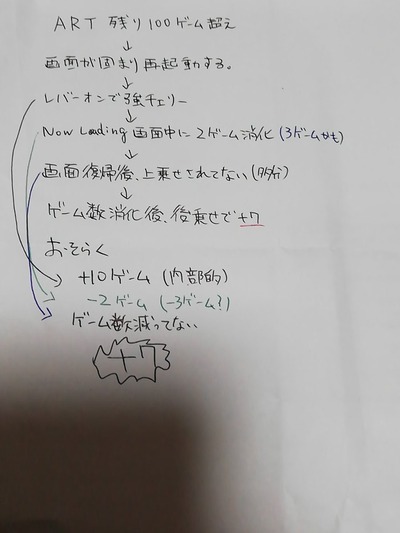 ART 残り100ゲーム超え
↓
画面が固まり再起動する。
↓
レバーオンで強チェリー
↓
Now Loading画面中に2ゲーム消化(3ゲームかも)
↓
画面復帰後、上乗せされてない(多分)
↓
ゲーム数消化後、後乗せで+7
おそらく
+10ゲーム(内部的)
-2ゲーム(-3ゲーム?)
ゲーム数減ってない
+7